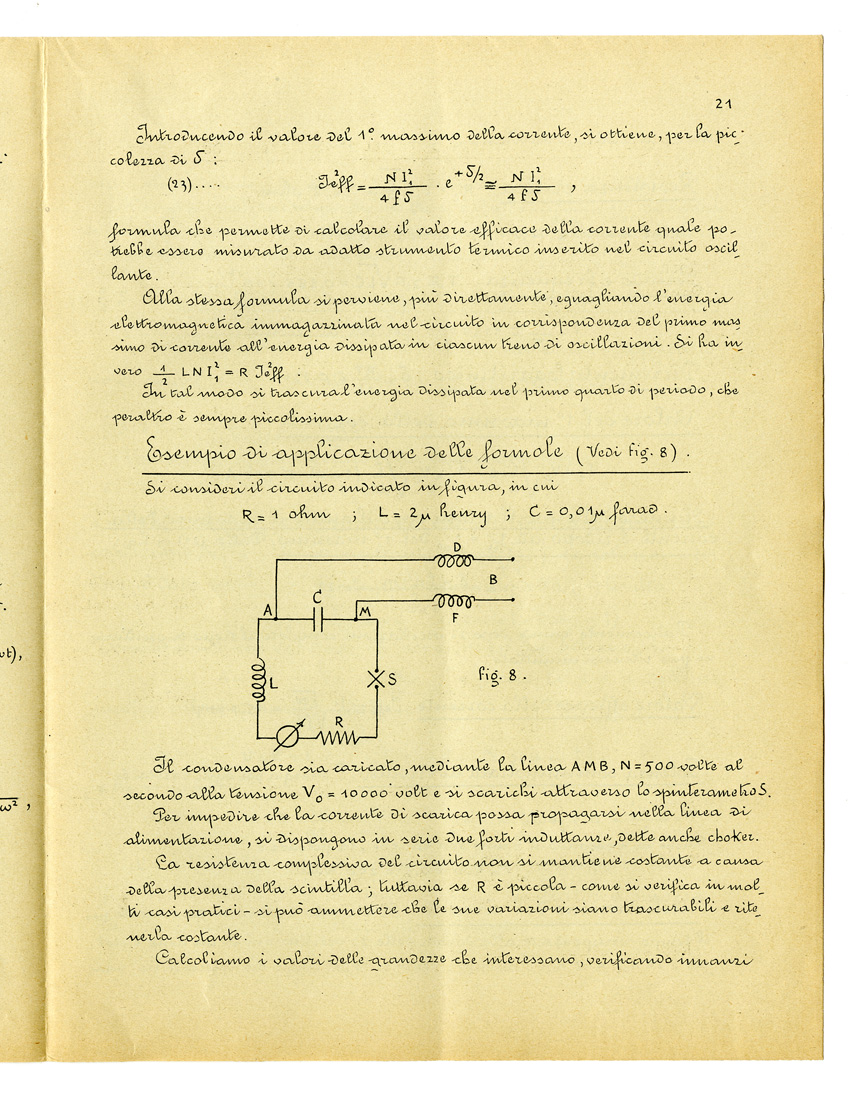 21
Introducendo il valore del 1° massimo della corrente, si ottiene, per la pic-
colezza di δ :
(23).... I²eff = N I₁² / 4 f δ · e^+δ/2 ≅ N I₁² / 4 f δ ,
formula che permette di calcolare il valore efficace della corrente quale po-
trebbe essere misurato da adatto strumento termico inserito nel circuito oscil
lante.
Alla stessa formula si perviene, più direttamente, eguagliando l'energia
elettromagnetica immagazzinata nel circuito in corrispondenza del primo mas
simo di corrente all'energia dissipata in ciascun treno di oscillazioni. Si ha in_
vero 1/2 L N I₁² = R I²eff :
In tal modo si trascura l'energia dissipata nel primo quarto di periodo, che
peraltro è sempre piccolissima.
Esempio di applicazione delle formole (Vedi fig. 8).
Si consideri il circuito indicato in figura, in cui
R = 1 ohm ; L = 2μ henry ; C = 0,01μ farad.
D
B
C
A
M
F
ωt),
L
S
fig. 8.
R
Il condensatore sia caricato, mediante la linea AMB, N = 500 volte al
secondo alla tensione V₀ = 10000 volt e si scarichi attraverso lo spinterametro S.
ω² ,
Per impedire che la corrente di scarica possa propagarsi nella linea di
alimentazione, si dispongono in serie due forti induttanze, dette anche choker.
La resistenza complessiva del circuito non si mantiene costante a causa
della presenza della scintilla ; tuttavia se R è piccola - come si verifica in mol_
ti casi pratici - si può ammettere che le sue variazioni siano trascurabili e rite_
nerla costante.
Calcoliamo i valori delle grandezze che interessano, verificando innanzi